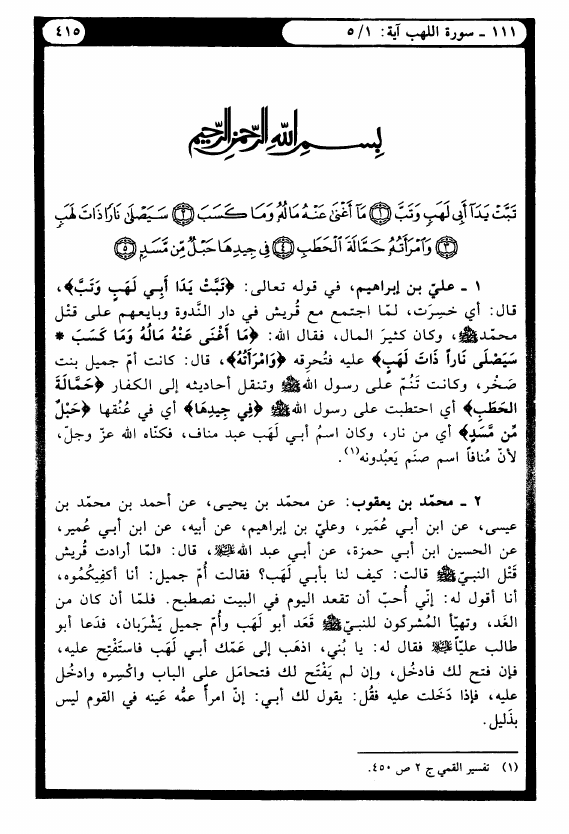 ١١١ ـ سورة اللهب آية: ١/ ٥
٤١٥
بِسْمِ اللهِ الرَّحْمنِ الرَّحِيمِ
تَبَّتْ يَدَآ أَبِي لَهَبٍ وَتَبَّ ﴿١﴾ مَآ أَغْنَىٰ عَنْهُ مَالُهُ وَمَا كَسَبَ ﴿٢﴾ سَيَصْلَىٰ نَارًا ذَاتَ لَهَبٍ
﴿٣﴾ وَآمْرَأَتُهُ حَمَّالَةَ الْحَطَبِ ﴿٤﴾ فِي جِيدِهَا حَبْلٌ مِّن مَّسَدٍ ﴿٥﴾
١ ـ عليّ بن إبراهيم، في قوله تعالى: ﴿تَبَّتْ يَدَا أَبِي لَهَبٍ وَتَبَّ﴾،
قال: أي خسِرَت، لمّا اجتمع مع قُريش في دار النَّدوة وبايعهم على قتْل
محمّدﷺ، وكان كثيرَ المال، فقال الله: ﴿مَا أَغْنَى عَنْهُ مَالُهُ وَمَا كَسَبَ *
سَيَصْلَى نَاراً ذَاتَ لَهَبٍ﴾ عليه فتُحرِقه ﴿وَامْرَأَتُهُ﴾، قال: كانت أمّ جميل بنت
صَخْر، وكانت تَنُمّ على رسول اللهﷺ وتنقل أحاديثه إلى الكفار ﴿حَمَّالَةَ
الحَطَبِ﴾ أي احتطبت على رسول اللهﷺ ﴿فِي جِيدِهَا﴾ أي في عُنُقها ﴿حَبْلٌ
مِّن مَّسَدٍ﴾ أي من نار، وكان اسمُ أبي لَهَب عبد مناف، فكنّاه الله عزّ وجلّ،
لأنّ مُنافاً اسم صنَم يَعبُدونه(١).
٢ ـ محمّد بن يعقوب: عن محمّد بن يحيى، عن أحمد بن محمّد بن
عيسى، عن ابن أبي عُمَير، وعليّ بن إبراهيم، عن أبيه، عن ابن أبي عُمير،
عن الحسين ابن أبي حمزة، عن أبي عبد الله؏، قال: «لمّا أرادت قُريش
قَتْل النبيّﷺ قالت: كيف لنا بأبي لَهَب؟ فقالت أُمّ جميل: أنا أكفِيكُموه،
أنا أقول له: إنّي أُحبّ أن تقعد اليوم في البيت نصطبح. فلمّا أن كان من
الغَد، وتهيّأ المُشركون للنبيّﷺ قَعَد أبو لَهَب وأُمّ جميل يَشْرَبان، فدَعا أبو
طالب عليّاً؏ فقال له: يا بُني، اذهَب إلى عَمّك أبي لَهَب فاستَفْتِح عليه،
فإن فتح لك فادخُل، وإن لم يَفْتَح لك فتحامَل على الباب واكْسِره وادخُل
عليه، فإذا دَخَلت عليه فقُل: يقول لك أبي: إنّ امرأً عمُّه عَينه في القوم ليس
بذَليل.
(١) تفسير القمي ج ٢ ص ٤٥٠.